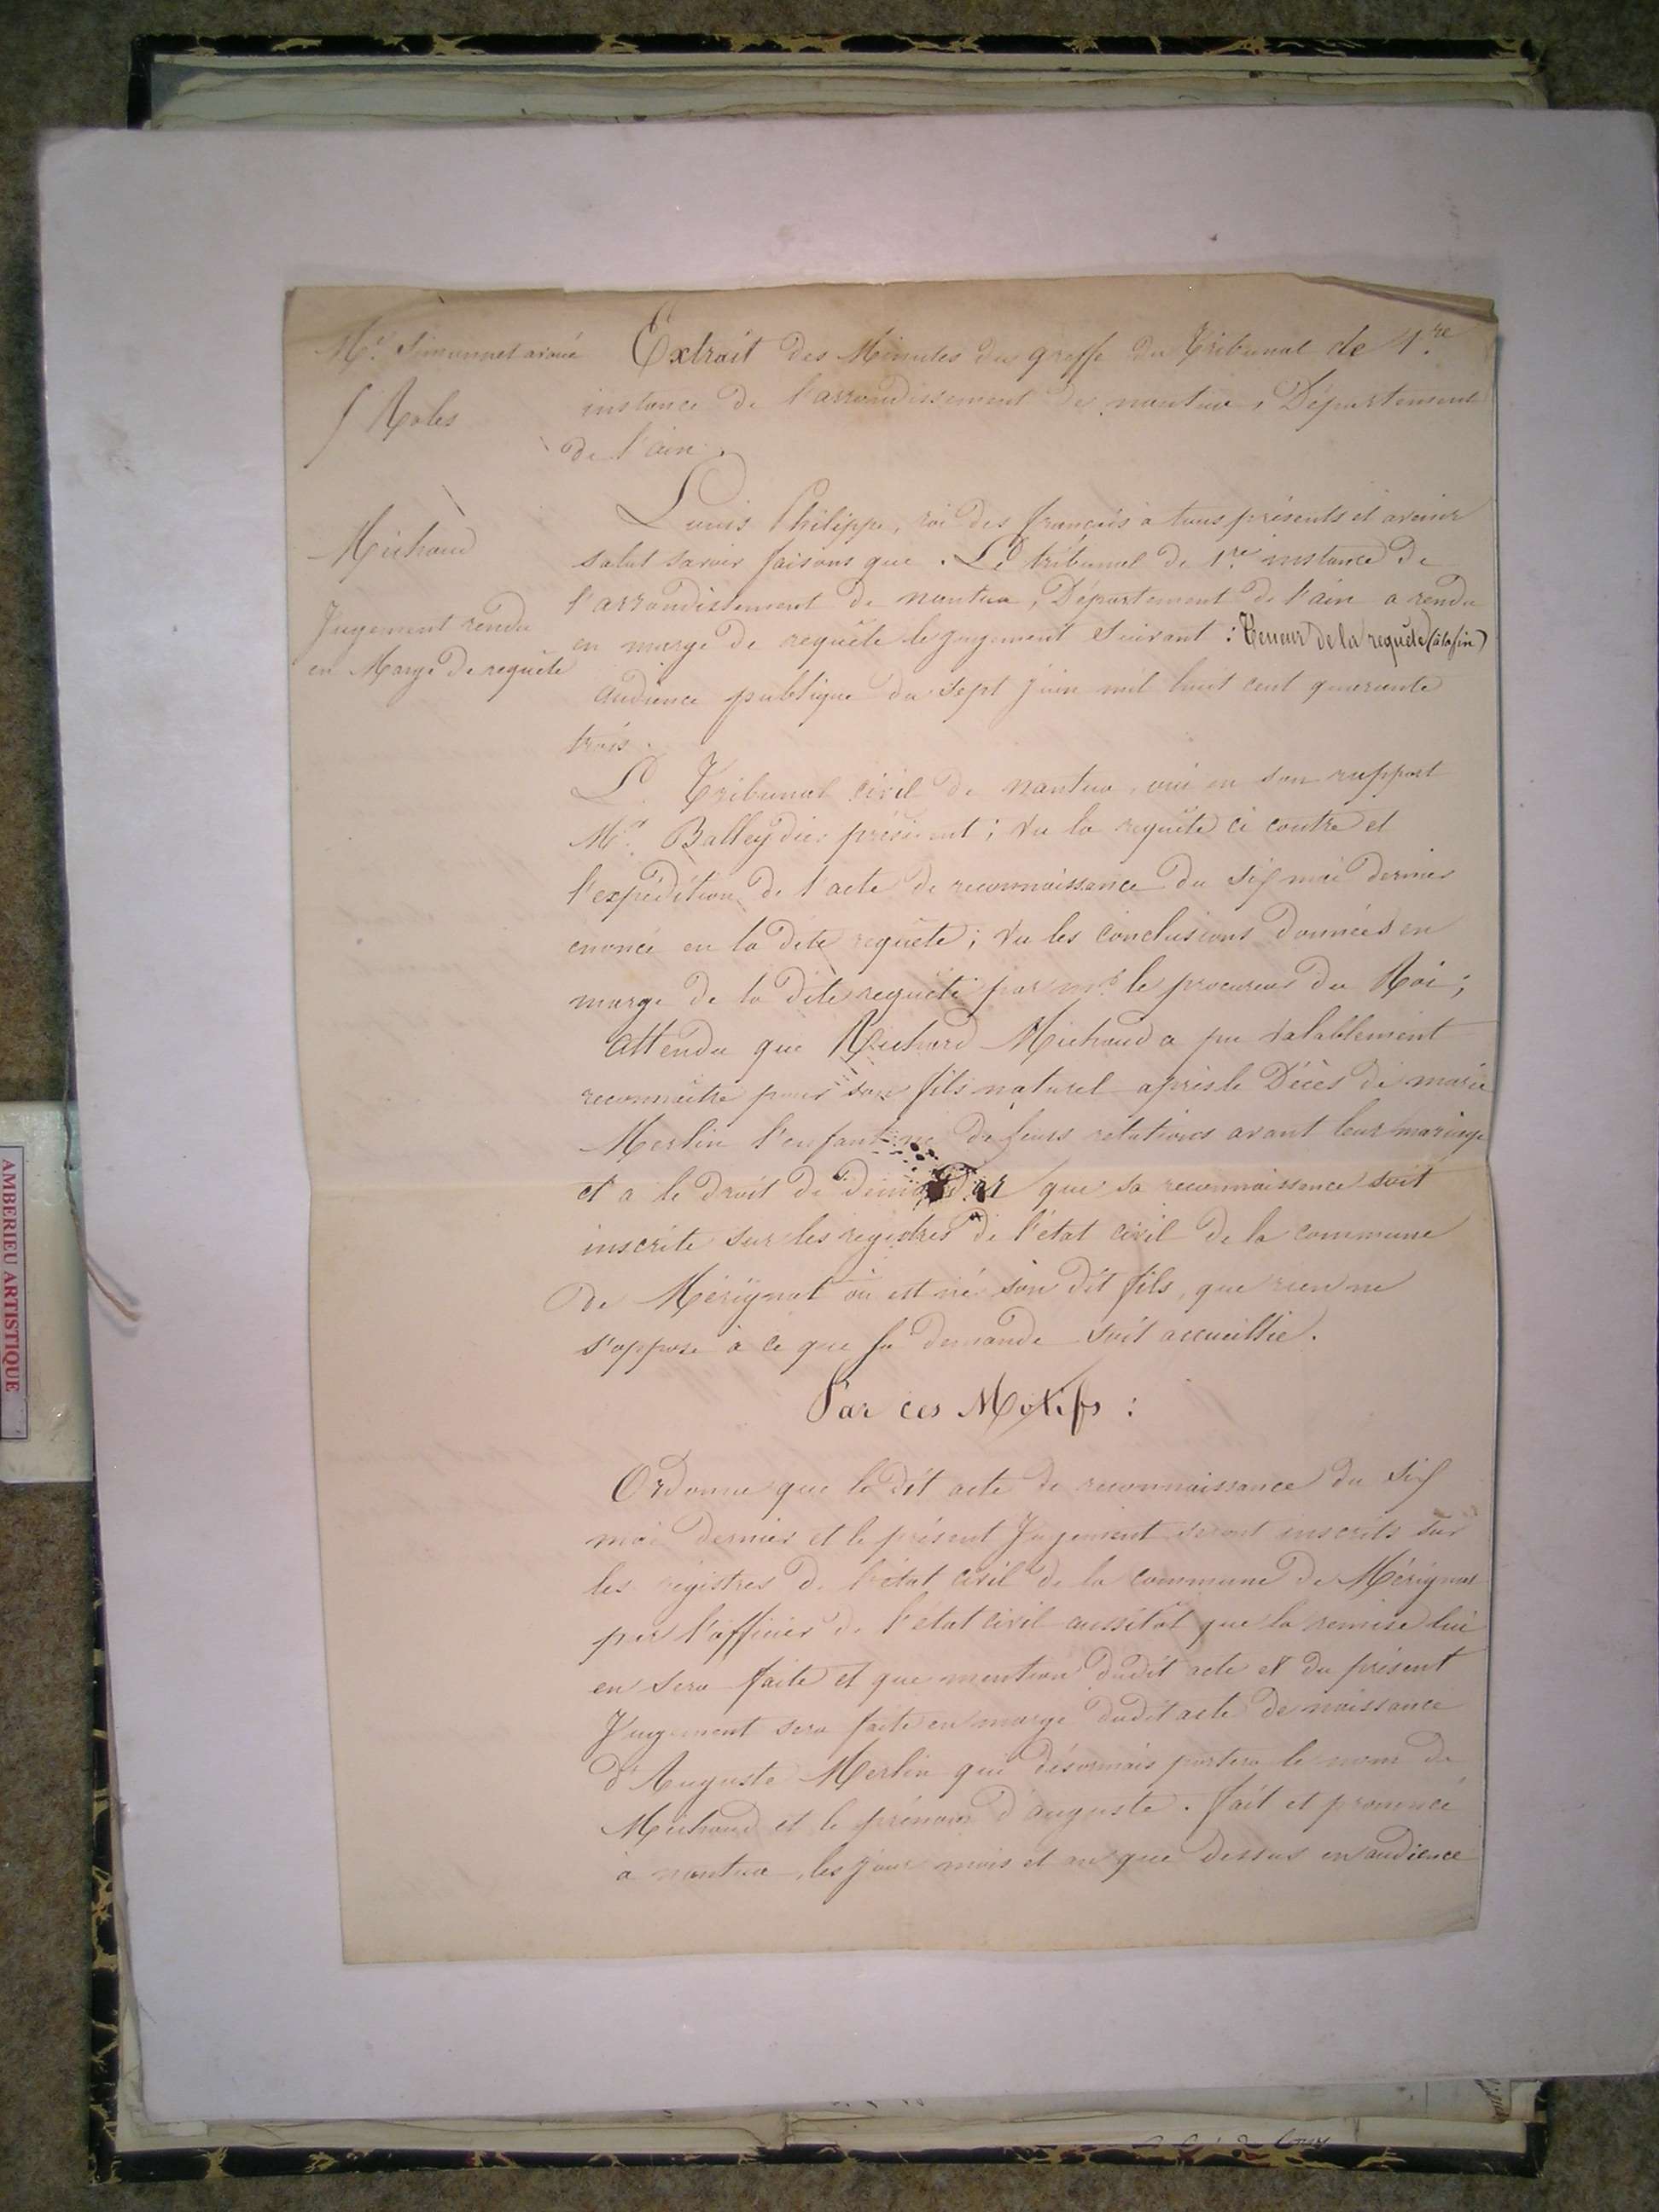 Mr. Simonnet avoué
f Roles
Michaud
Jugement rendu
en Marge de requête
Extrait des Minutes du greffe du Tribunal de 1re
instance de l'arrondissement de nantua, Département
de l'ain.
Louis Philippe, roi des français à tous présents et avenir
salut savoir faisons que. Le tribunal de 1re instance de
l'arrondissement de nantua, Département de l'ain a rendu
en marge de requête le jugement suivant : Teneur de la requête (à la fin)
audience publique du sept juin mil huit cent quarante
trois.
Le Tribunal civil de nantua, oui en son rapport
Mr. Balleydier président ; Vu la requête ci contre et
l'expédition de l'acte de reconnaissance du six mai dernier
énoncé en la dite requête ; Vu les Conclusions données en
marge de la dite requête par mr. le procureur du Roi ;
attendu que Richard Michaud a pu valablement
reconnaître pour son fils naturel après le Décès de marie
Merlin l'enfant né de leurs relations avant leur mariage
et a le droit de demander que sa reconnaissance soit
inscrite sur les registres de l'état civil de la commune
de Mérignat où est né son dit fils, que rien ne
s'oppose à ce que sa demande soit accueillie.
Par ces Motifs :
Ordonne que le dit acte de reconnaissance du six
mai dernier et le présent Jugement seront inscrits sur
les registres de l'état civil de la commune de Mérignat
par l'officier de l'état civil aussitôt que la remise lui
en sera faite et que mention dudit acte et du présent
Jugement sera faite en marge dudit acte de naissance
d'Auguste Merlin qui désormais portera le nom de
Michaud et le prénom d'auguste. fait et prononcé
à nantua, les jour mois et an que dessus en audience
AMBERIEU ARTISTIQUE